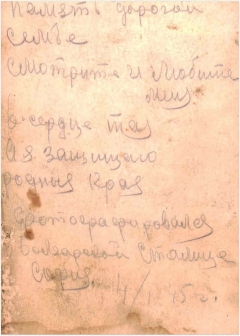 Память дорогой
семье
смотрите и любите
меня
в сердце тая
А я защищаю
родныя края
Фотографировался
Болгарской сталице
София. 14/I 45 г.